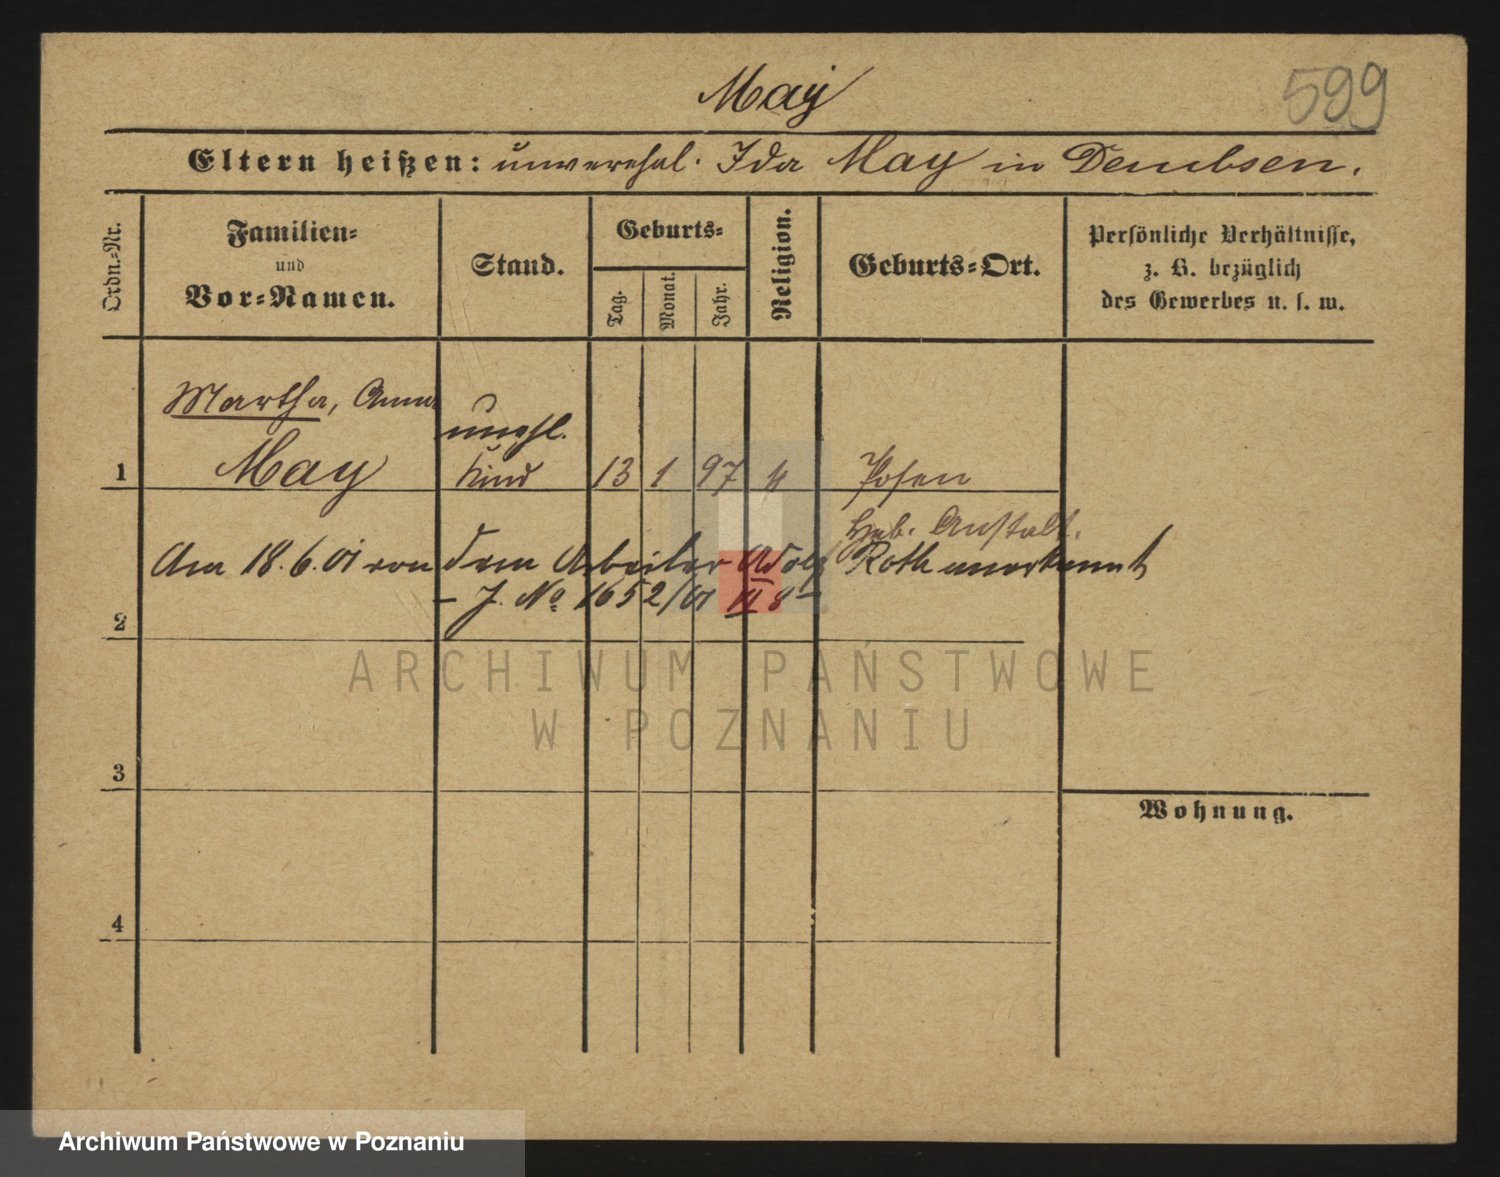 May
599
Eltern heißen: unverehel. Ida May in Dembsen.
Ordn.-Nr.
Familien-
und
Vor-Namen.
Stand.
Geburts-
Tag.
Monat.
Jahr.
Religion.
Geburts-Ort.
Persönliche Verhältnisse,
z. B. bezüglich
des Gewerbes u. s. w.
Martha, Anna
unehl.
1 May Kind 13 1 97 Posen
Heb. Anstalt.
Am 18.6.01 von dem Arbeiter Adolf Roth anerkannt
– J. No 1652/01 II 8 –
2
ARCHIWUM PAŃSTWOWE
W POZNANIU
3
Wohnung.
4
Archiwum Państwowe w Poznaniu